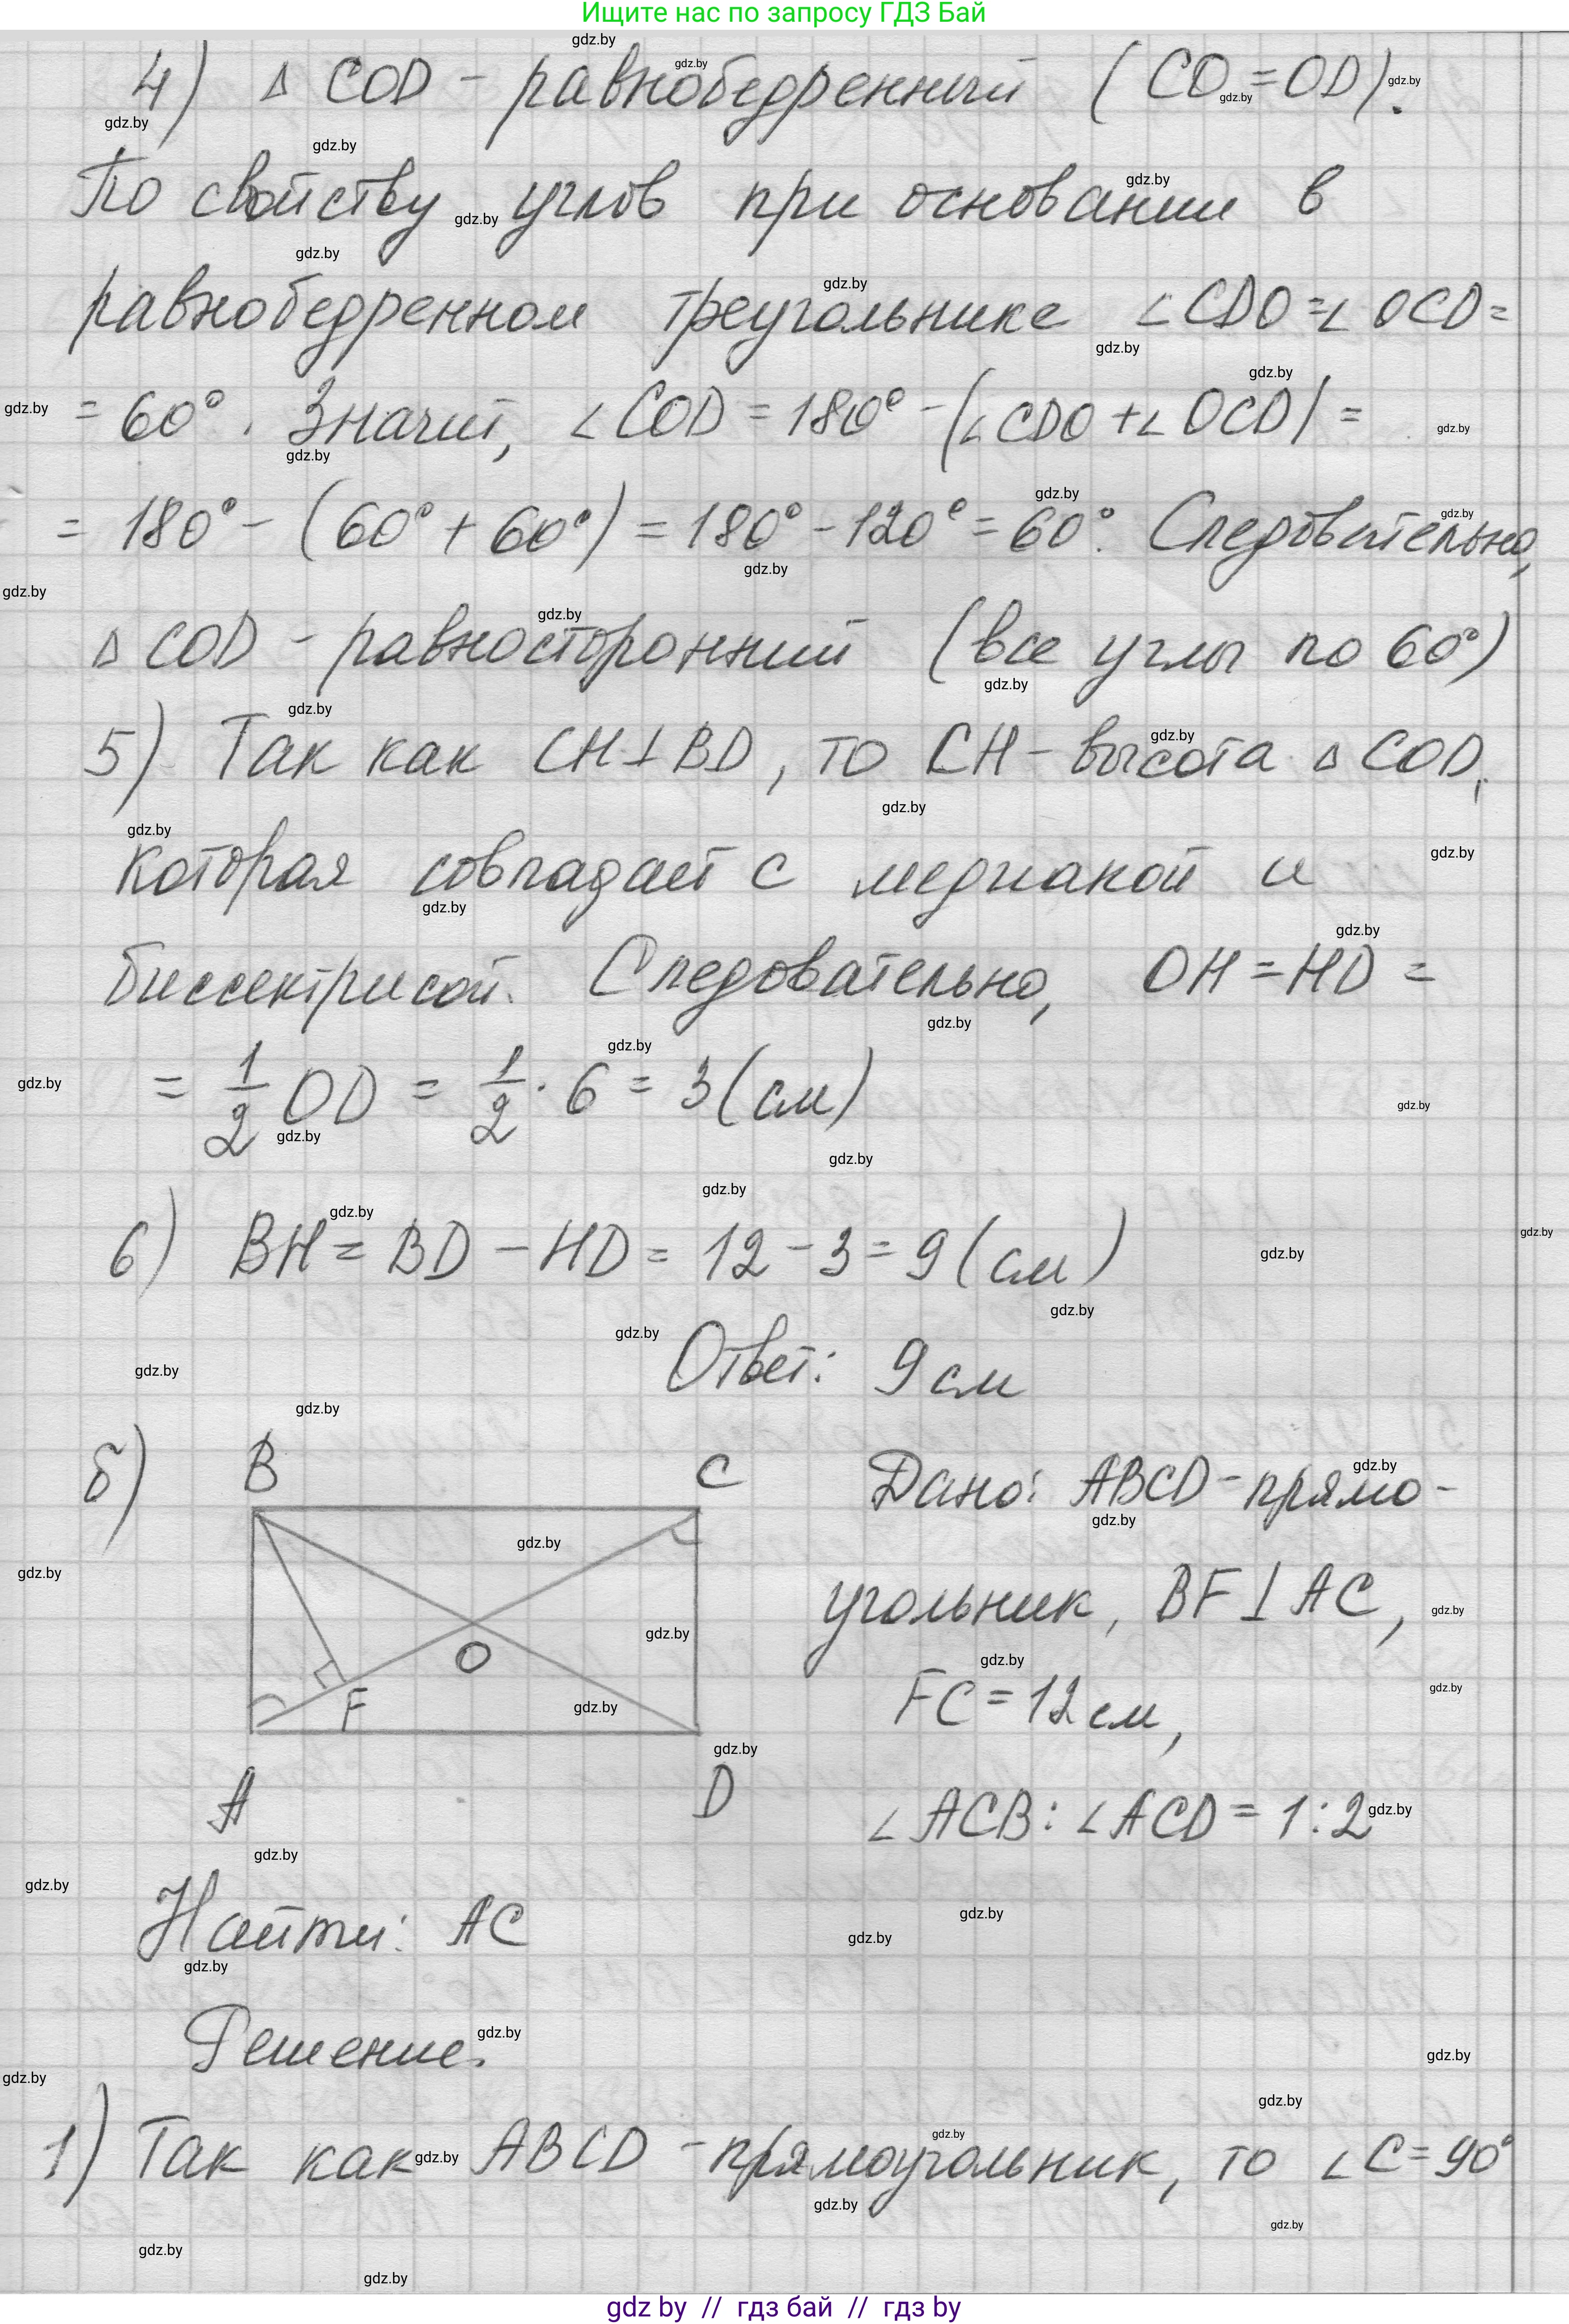 Ищите нас по запросу ГДЗ Бай
4) Δ COD - равнобедренный (CO = OD).
По свойству углов при основании в
равнобедренном треугольнике ∠CDO = ∠OCD =
= 60°. Значит, ∠COD = 180° - (∠CDO + ∠OCD) =
= 180° - (60° + 60°) = 180° - 120° = 60°. Следовательно,
Δ COD - равносторонний (все углы по 60°)
5) Так как CH ⊥ BD, то CH - высота Δ COD,
которая совпадает с медианой и
биссектрисой. Следовательно, OH = HD =
= 1/2 OD = 1/2 · 6 = 3 (см)
6) BH = BD - HD = 12 - 3 = 9 (см)
Ответ: 9 см
б) B C
O
F
A D
Дано: ABCD - прямо-
угольник, BF ⊥ AC,
FC = 12 см,
∠ACB : ∠ACD = 1 : 2
Найти: AC
Решение.
1) Так как ABCD - прямоугольник, то ∠C = 90°
gdz by // гдз бай // гдз by